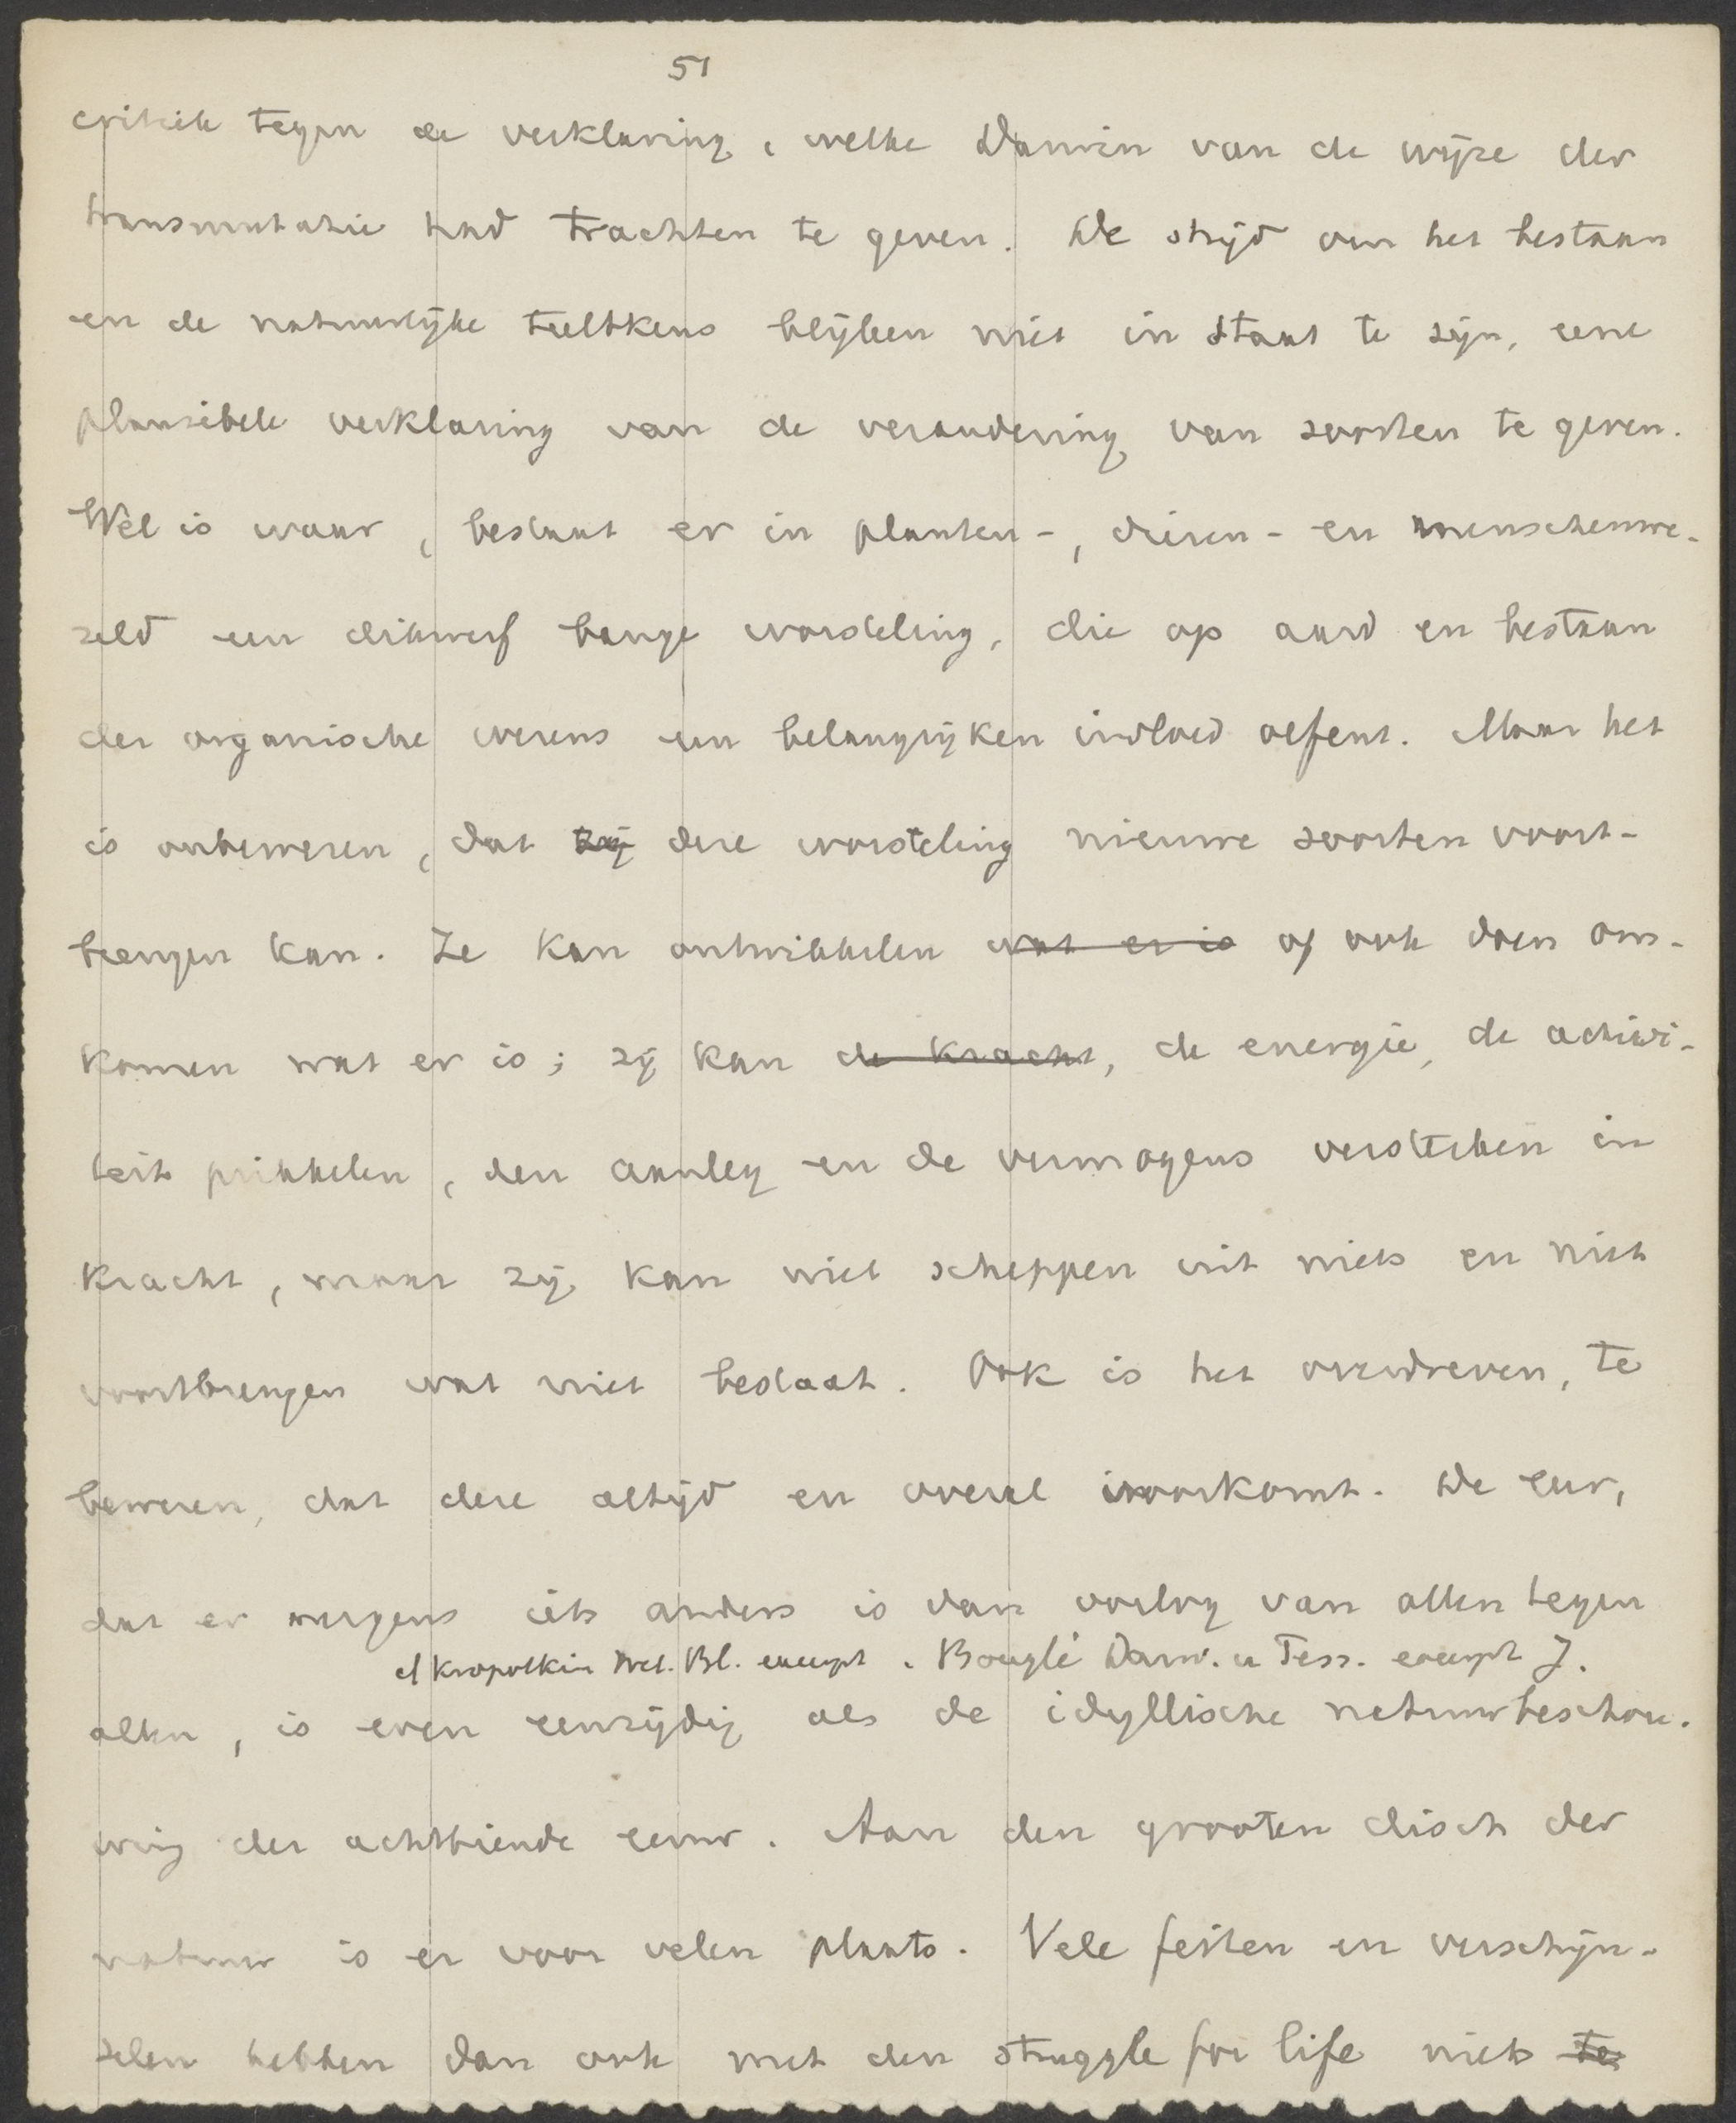 51
critiek tegen de verklaring, welke Darwin van de wijze der
transmutatie had trachten te geven. De strijd om het bestaan
en de natuurlijke teeltkeus blijken niet in staat te zijn, eene
plausibele verklaring van de verandering van soorten te geven.
Wèl is waar, bestaat er in planten-, dieren- en menschenwe-
reld een dikwerf bange worsteling, die op aard en bestaan
der organische wezens een belangrijken invloed oefent. Maar het
is onbewezen, dat zij deze worsteling nieuwe soorten voort-
brengen kan. Ze kan ontwikkelen wat er is of ook doen om-
komen wat er is; zij kan de kracht, de energie, de activi-
teit prikkelen, den aanleg en de vermogens versterken in
kracht, maar zij kan niet scheppen uit niets en niet
voortbrengen wat niet bestaat. Ook is het overdreven, te
beweren, dat deze altijd en overal voorkomt. De leer,
dat er nergens iets anders is dan oorlog van allen tegen
cf Kropotkin Wet. Bl. excerpt. Bouglé Darw. u Tess. excerpt J.
allen, is even eenzijdig als de idyllische natuurbeschou-
wing der achttiende eeuw. Aan den grooten disch der
natuur is er voor velen plaats. Vele feiten en verschijn-
selen hebben dan ook met den struggle for life niets te